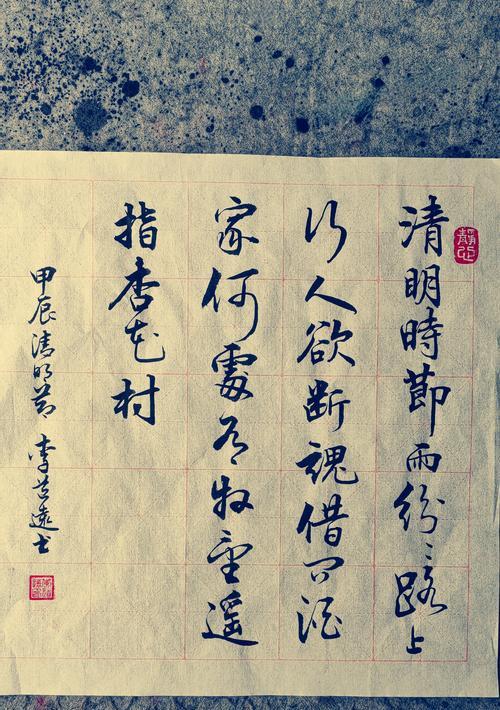 清明時節雨紛〻路上
行人欲斷魂借问酒
家何處有牧童遥
指杏花村
甲辰清明節 李